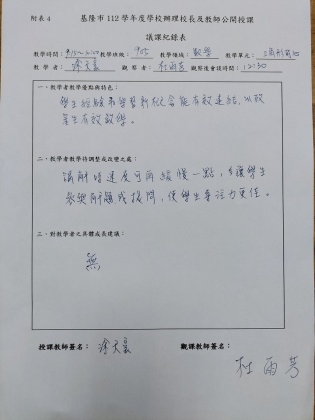 附表 4
基隆市 112 學年度學校辦理校長及教師公開授課
議課紀錄表
教學時間: 教學班級: 905 教學領域: 數學 教學單元: 三角形的心
教 學 者: 觀 察 者: 杜雨芳 觀察後會談時間: 12:30
一、教學者教學優點與特色:
學生經驗與學習新概念能有效連結,以致
產生有效教學。
二、教學者教學待調整或改變之處:
講解時速度可再緩慢一點,多讓學生
參與解題或提問,使學生專注力更佳。
三、對教學者之具體成長建議:
無
授課教師簽名: 觀課教師簽名:
杜雨芳